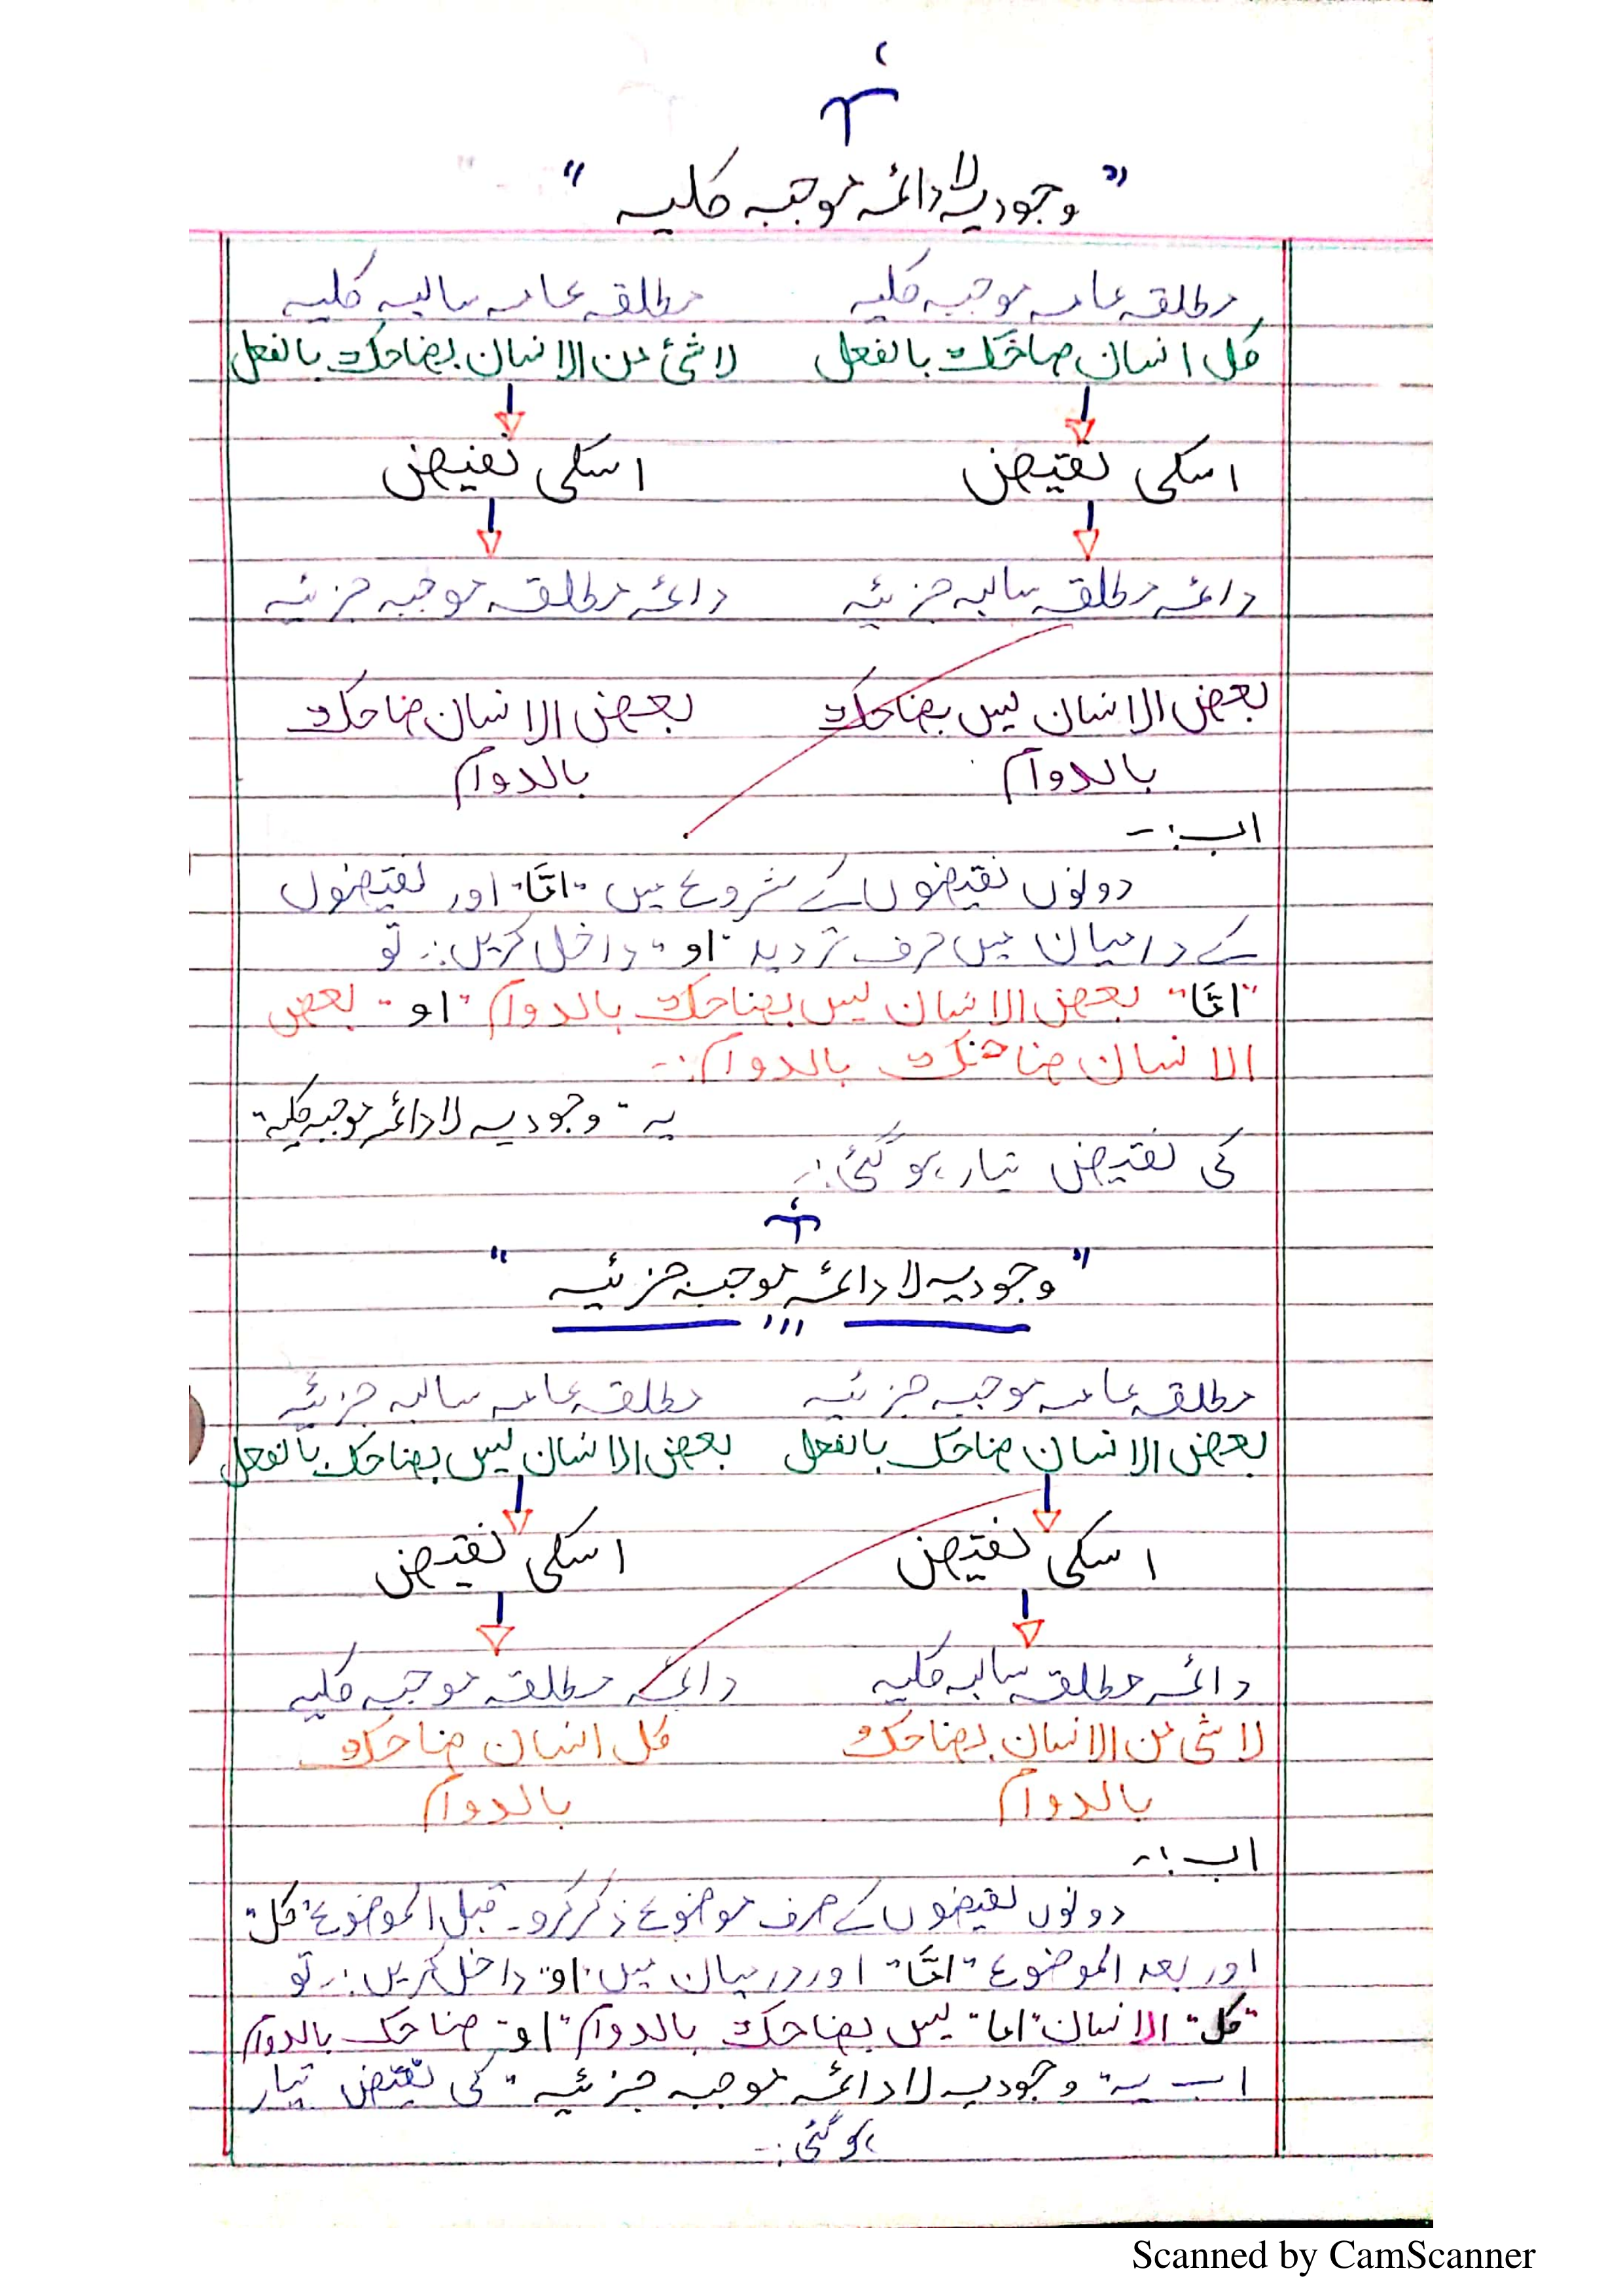 "وجودیہ لا دائمہ موجبہ کلیہ"
مطلقہ عامہ موجبہ کلیہ    مطلقہ عامہ سالبہ کلیہ
کل انسان ضاحک بالفعل    لا شئ من الانسان بضاحک بالفعل
اسکی نقیض    اسکی نقیض
دائمہ مطلقہ سالبہ جزئیہ    دائمہ مطلقہ موجبہ جزئیہ
بعض الانسان لیس بضاحک    بعض الانسان ضاحک
بالدوام    بالدوام
اب:-
دونوں نقیضوں کے شروع میں "امّا" اور نقیضوں
کے درمیان میں حرف تردید "او" داخل کریں:- تو
"امّا" بعض الانسان لیس بضاحک بالدوام "او" بعض
الانسان ضاحک بالدوام:-
یہ "وجودیہ لا دائمہ موجبہ کلیہ"
کی نقیض تیار ہو گئی:-
"وجودیہ لا دائمہ موجبہ جزئیہ"
مطلقہ عامہ موجبہ جزئیہ    مطلقہ عامہ سالبہ جزئیہ
بعض الانسان ضاحک بالفعل    بعض الانسان لیس بضاحک بالفعل
اسکی نقیض    اسکی نقیض
دائمہ مطلقہ سالبہ کلیہ    دائمہ مطلقہ موجبہ کلیہ
لا شئ من الانسان بضاحک    کل انسان ضاحک
بالدوام    بالدوام
اب:-
دونوں نقیضوں کے صرف موضوع ذکر کرو۔ قبل الموضوع "کل"
اور بعد الموضوع "امّا" اور درمیان میں "او" داخل کریں:- تو
"کل" الانسان "اما" لیس بضاحک بالدوام "او" ضاحک بالدوام
اب یہ "وجودیہ لا دائمہ موجبہ جزئیہ" کی نقیض تیار
ہو گئی:-
Scanned by CamScanner